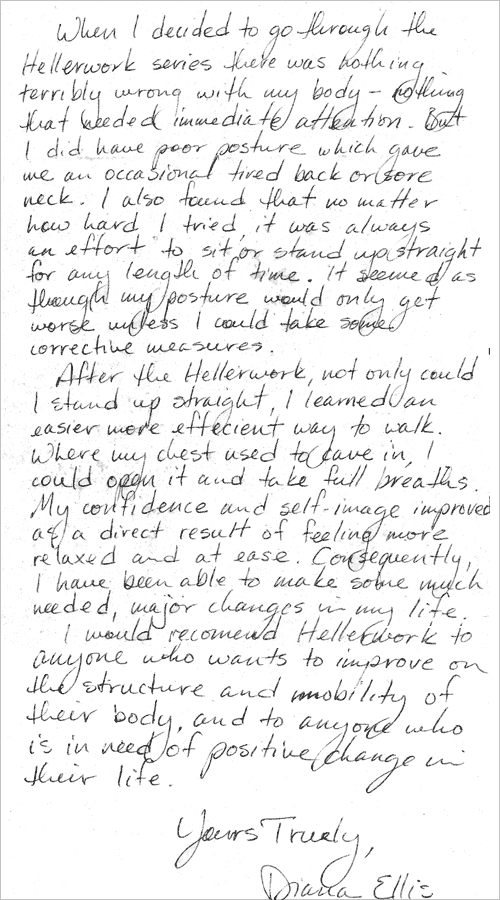 When I decided to go through the
Hellerwork series there was nothing
terribly wrong with my body - nothing
that needed immediate attention. But
I did have poor posture which gave
me an occasional tired back or sore
neck. I also found that no matter
how hard I tried, it was always
an effort to sit or stand up straight
for any length of time. It seemed as
though my posture would only get
worse unless I could take some
corrective measures.
After the Hellerwork, not only could
I stand up straight, I learned an
easier more effecient way to walk.
Where my chest used to cave in, I
could open it and take full breaths.
My confidence and self-image improved
as a direct result of feeling more
relaxed and at ease. Consequently,
I have been able to make some much
needed, major changes in my life.
I would recomend Hellerwork to
anyone who wants to improve on
the structure and mobility of
their body, and to anyone who
is in need of positive change in
their life.
Yours Truely,
Diana Ellis